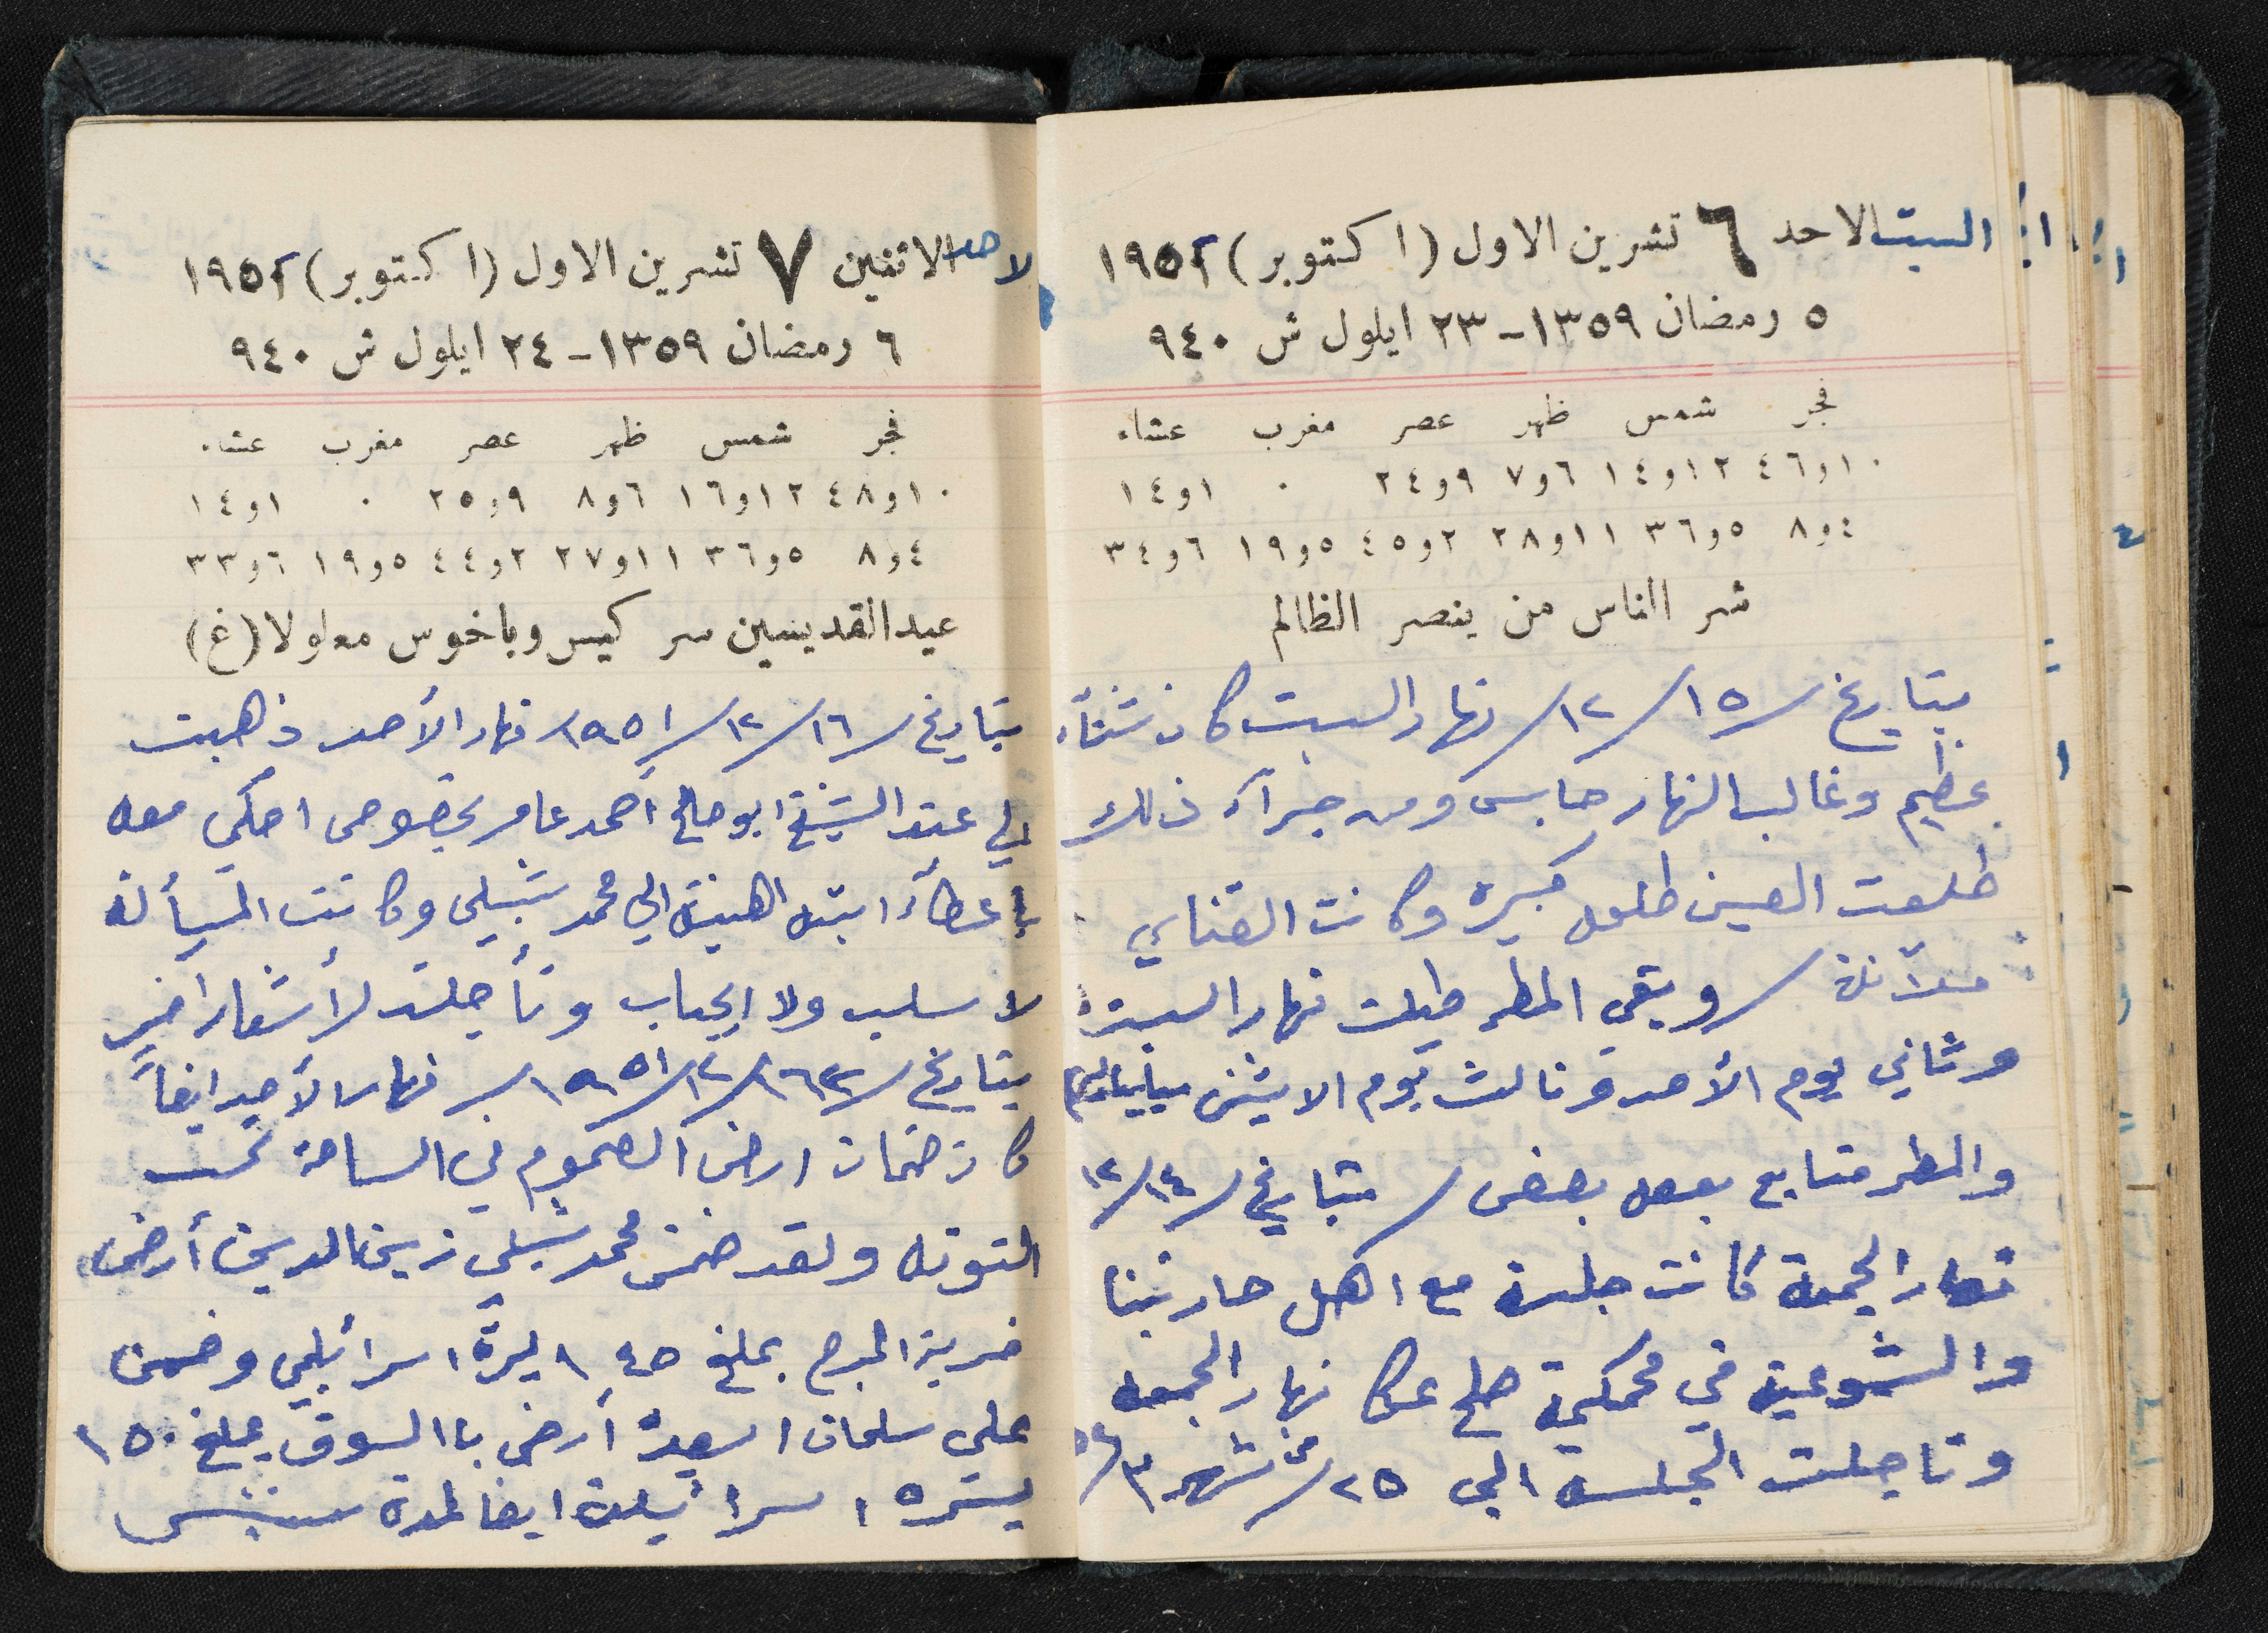 السبت الاحد ٦ تشرين الاول (اكتوبر) ١٩٥٢
٥ رمضان ١٣٥٩ - ٢٣ ايلول ش ٩٤٠
فجر شمس ظهر عصر مغرب عشاء
١٠و٤٦ ١٢و١٤ ٦و٧ ٩و٢٤ ٠ ١و١٤
٤و٨ ٥و٣٦ ١١و٢٨ ٢و٤٥ ٥و١٩ ٦و٣٤
شر الناس من ينصر الظالم
بتاريخ /١٥/١٢/ نهار السبت كان شتآء
عظيم وغالب النهار حابس ومن جرآء ذلك
طلعت العين طلعه كبيره وكانت القناي
ملآنة / وبقي المطر طيلت نهار السبت
وثاني يوم الأحد وثالث يوم الايثنين
والمطر متابع بعضه بعض / بتاريخ /١٤/١٢
نهار الجمعة كانت جلسة مع اهل حارتنا
والشوعية في محكمة صلح عكا نهار الجمعه
وتاجلت الجلسه الى ٢٥/ من شهر ٣/٥٢
لاحد الاثنين ٧ تشرين الاول (اكتوبر) ١٩٥٢
٦ رمضان ١٣٥٩ - ٢٤ ايلول ش ٩٤٠
فجر شمس ظهر عصر مغرب عشاء
١٠و٤٨ ١٢و١٦ ٦و٨ ٩و٢٥ ٠ ١و١٤
٤و٨ ٥و٣٦ ١١و٢٧ ٢و٤٤ ٥و١٩ ٦و٣٣
عيد القديسين سركيس وباخوس معلولا (غ)
بتاريخ /١٦/١٢/١٩٥١/ نهار الأحد ذهبت
الي عند الشيخ ابو صالح أحمد عامر بخصوص احكي معه
باعطآء ابنته اهينة الي محمد شبلي وكانت المسألة
لا سلب ولا ايجاب وتأجلت لأشعار اخير
بتاريخ /١٢/١٩٥١/ نهار الأحد ايضاً
كان ضمان ارض العموم في الساحة تحت
التوته ولقد ضمن محمد شبلي زين الدين أرض
خربة المرج بملغ ١٤٥ ليرة اسرائيلي وضمن
علي سلمان اسعد أرض باالسوق بملغ ١٥٠
ليره اسرائيلية ايضا لمدة سنتين